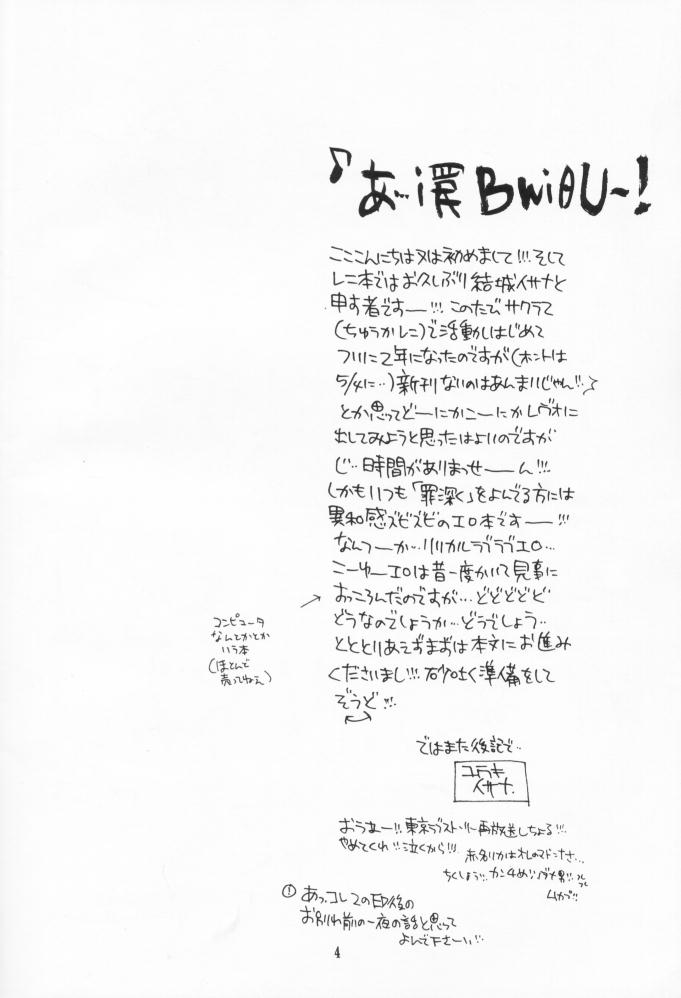 こここんにちは又は初めまして!!!そして
レニ本ではお久しぶり結城イサナと
申す者ですー!!! このたびサクラで
(ちゅうかレニ)で活動しはじめて
ついに2年になったのですが(ホントは
5/4に‥)新刊ないのはあんまいじゃん!!
とか思ってどーにかこーにかレヴォに
出してみようと思ったはよいのですが
じ‥時間がありまっせーん!!!
しかもいつも「罪深く」をよんでる方には
異和感ズビズビのエロ本ですー!!!
なんつーか‥リリカルラブラブエロ…
こーゆーエロは昔一度かいて見事に
おっころんだのですが…どどどどど
どうなのでしょうか…どうでしょう‥
とととりあえずまずは本文にお進み
くださいまし!!!砂吐く準備をして
ぞうど!!!
コンピュータ
なんとかとか
いう本
(ほとんで
売ってねえ)
ではまた後記で‥
ユウキ
イサナ
おうまー!!東京ラブストーリー再放送しちょる!!!
やめてくれ!!泣くから!!!
赤名リカはオレのマドンナさ…
ちくしょう!!カンチめ
ムカプ!!
! あっコレ2の印後の
お別れ前の一夜の話と思って
よんで下さーい!!
4